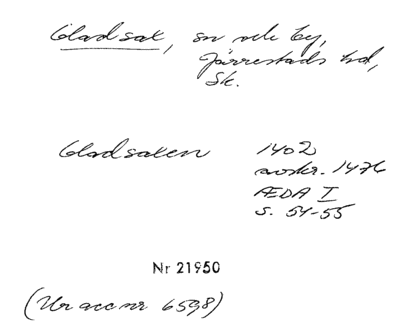 Gladsax, sn och by,
Järrestads hd,
Sk.
Gladsaxen 1402
avskr. 1476
ÆDA I
s. 54-55
Nr 21950
(Ur acc nr 6598)